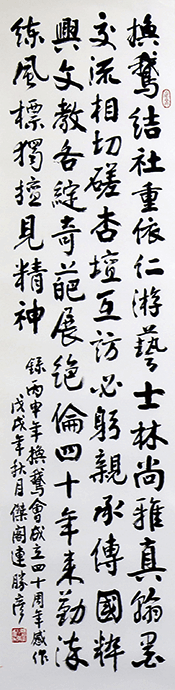 換鵞結社重依仁游藝士林尚雅真翰墨
交流相切磋杏壇互訪必躬親承傳國粹
興文教各綻奇葩展絕倫四十年來勤淬
練風標獨擅見精神
錄丙申年換鵞會成立四十周年感作
戊戌年秋月傑閣連勝彥